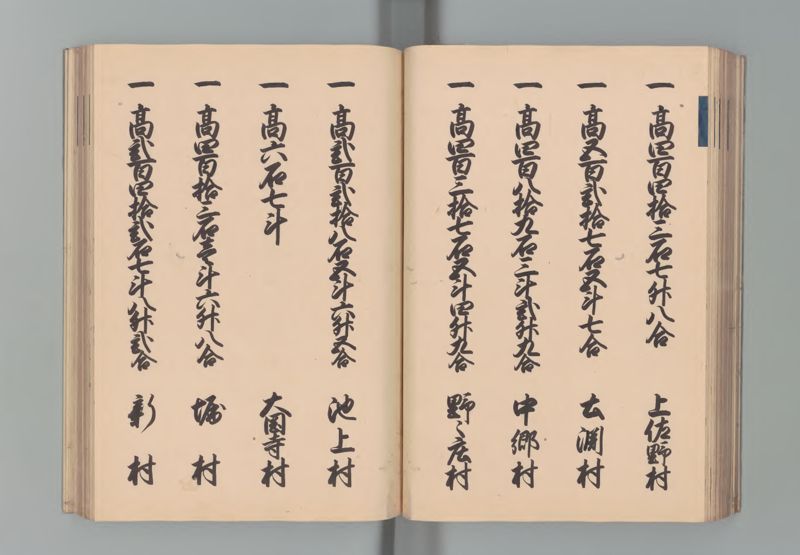 一 高四百四拾三石七升八合 上佐野村
一 高五百弐拾七石五斗七合 玄渕村
一 高四百八拾九石三斗弐升九合 中郷村
一 高四百三拾七石五斗四升九合 野々庄村
一 高弐百弐拾八石五斗六升五合 池上村
一 高六石七斗 大国寺村
一 高四百拾三石壱斗六升八合 堀村
一 高弐百四拾弐石七斗八升弐合 新村